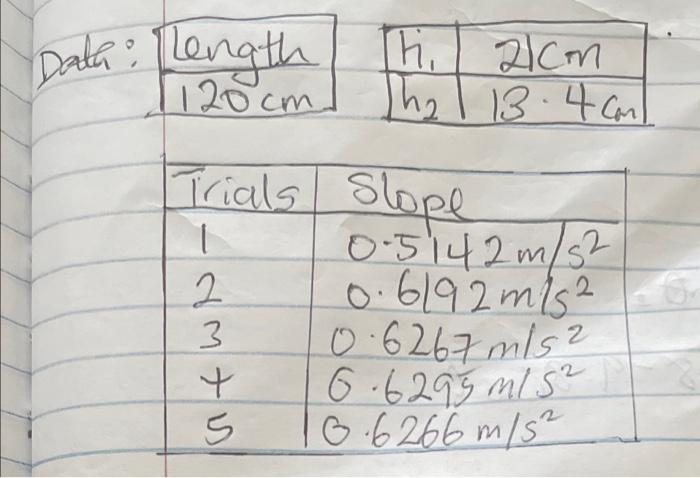 Data: Length h₁ 21cm
120 cm h₂ 13.4 cm
Trials Slope
1 0.5142 m/s²
2 0.6192 m/s²
3 0.6267 m/s²
4 0.6295 m/s²
5 0.6266 m/s²